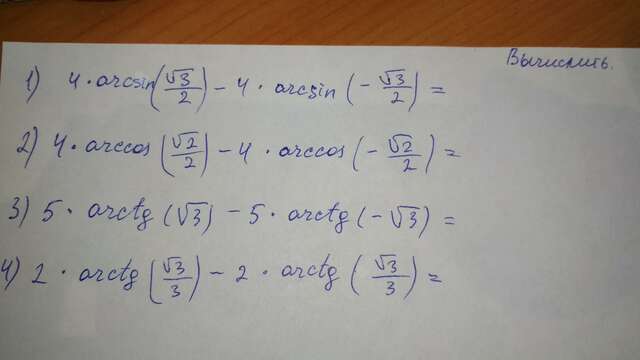 Вычислить.
1) 4 · arcsin(√3/2) − 4 · arcsin(−√3/2) =
2) 4 · arccos(√2/2) − 4 · arccos(−√2/2) =
3) 5 · arctg(√3) − 5 · arctg(−√3) =
4) 2 · arctg(√3/3) − 2 · arctg(√3/3) =